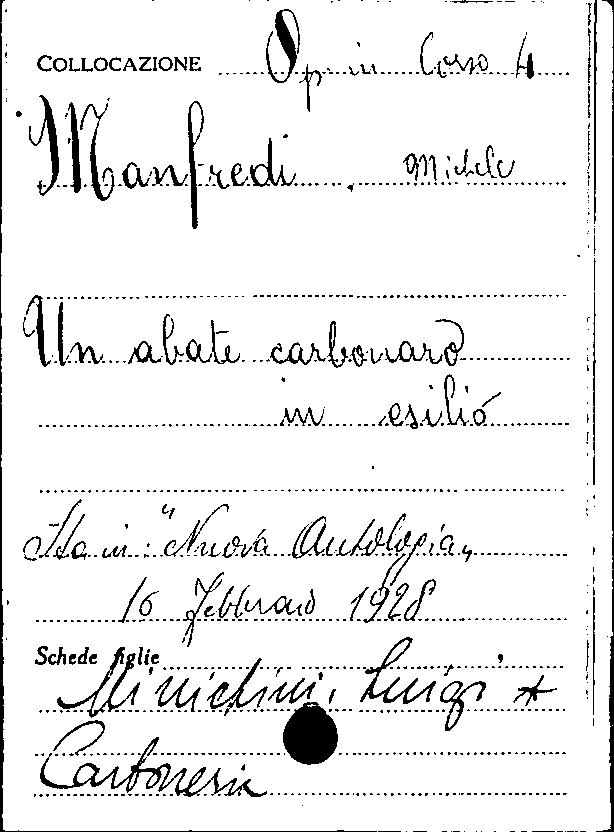 COLLOCAZIONE Op. in Corso 4
Manfredi. Michele
Un abate carbonaro
in esilio
Sta in: "Nuova Antologia„
16 Febbraio 1928
Schede figlie
Minichini, Luigi +
Carboneria